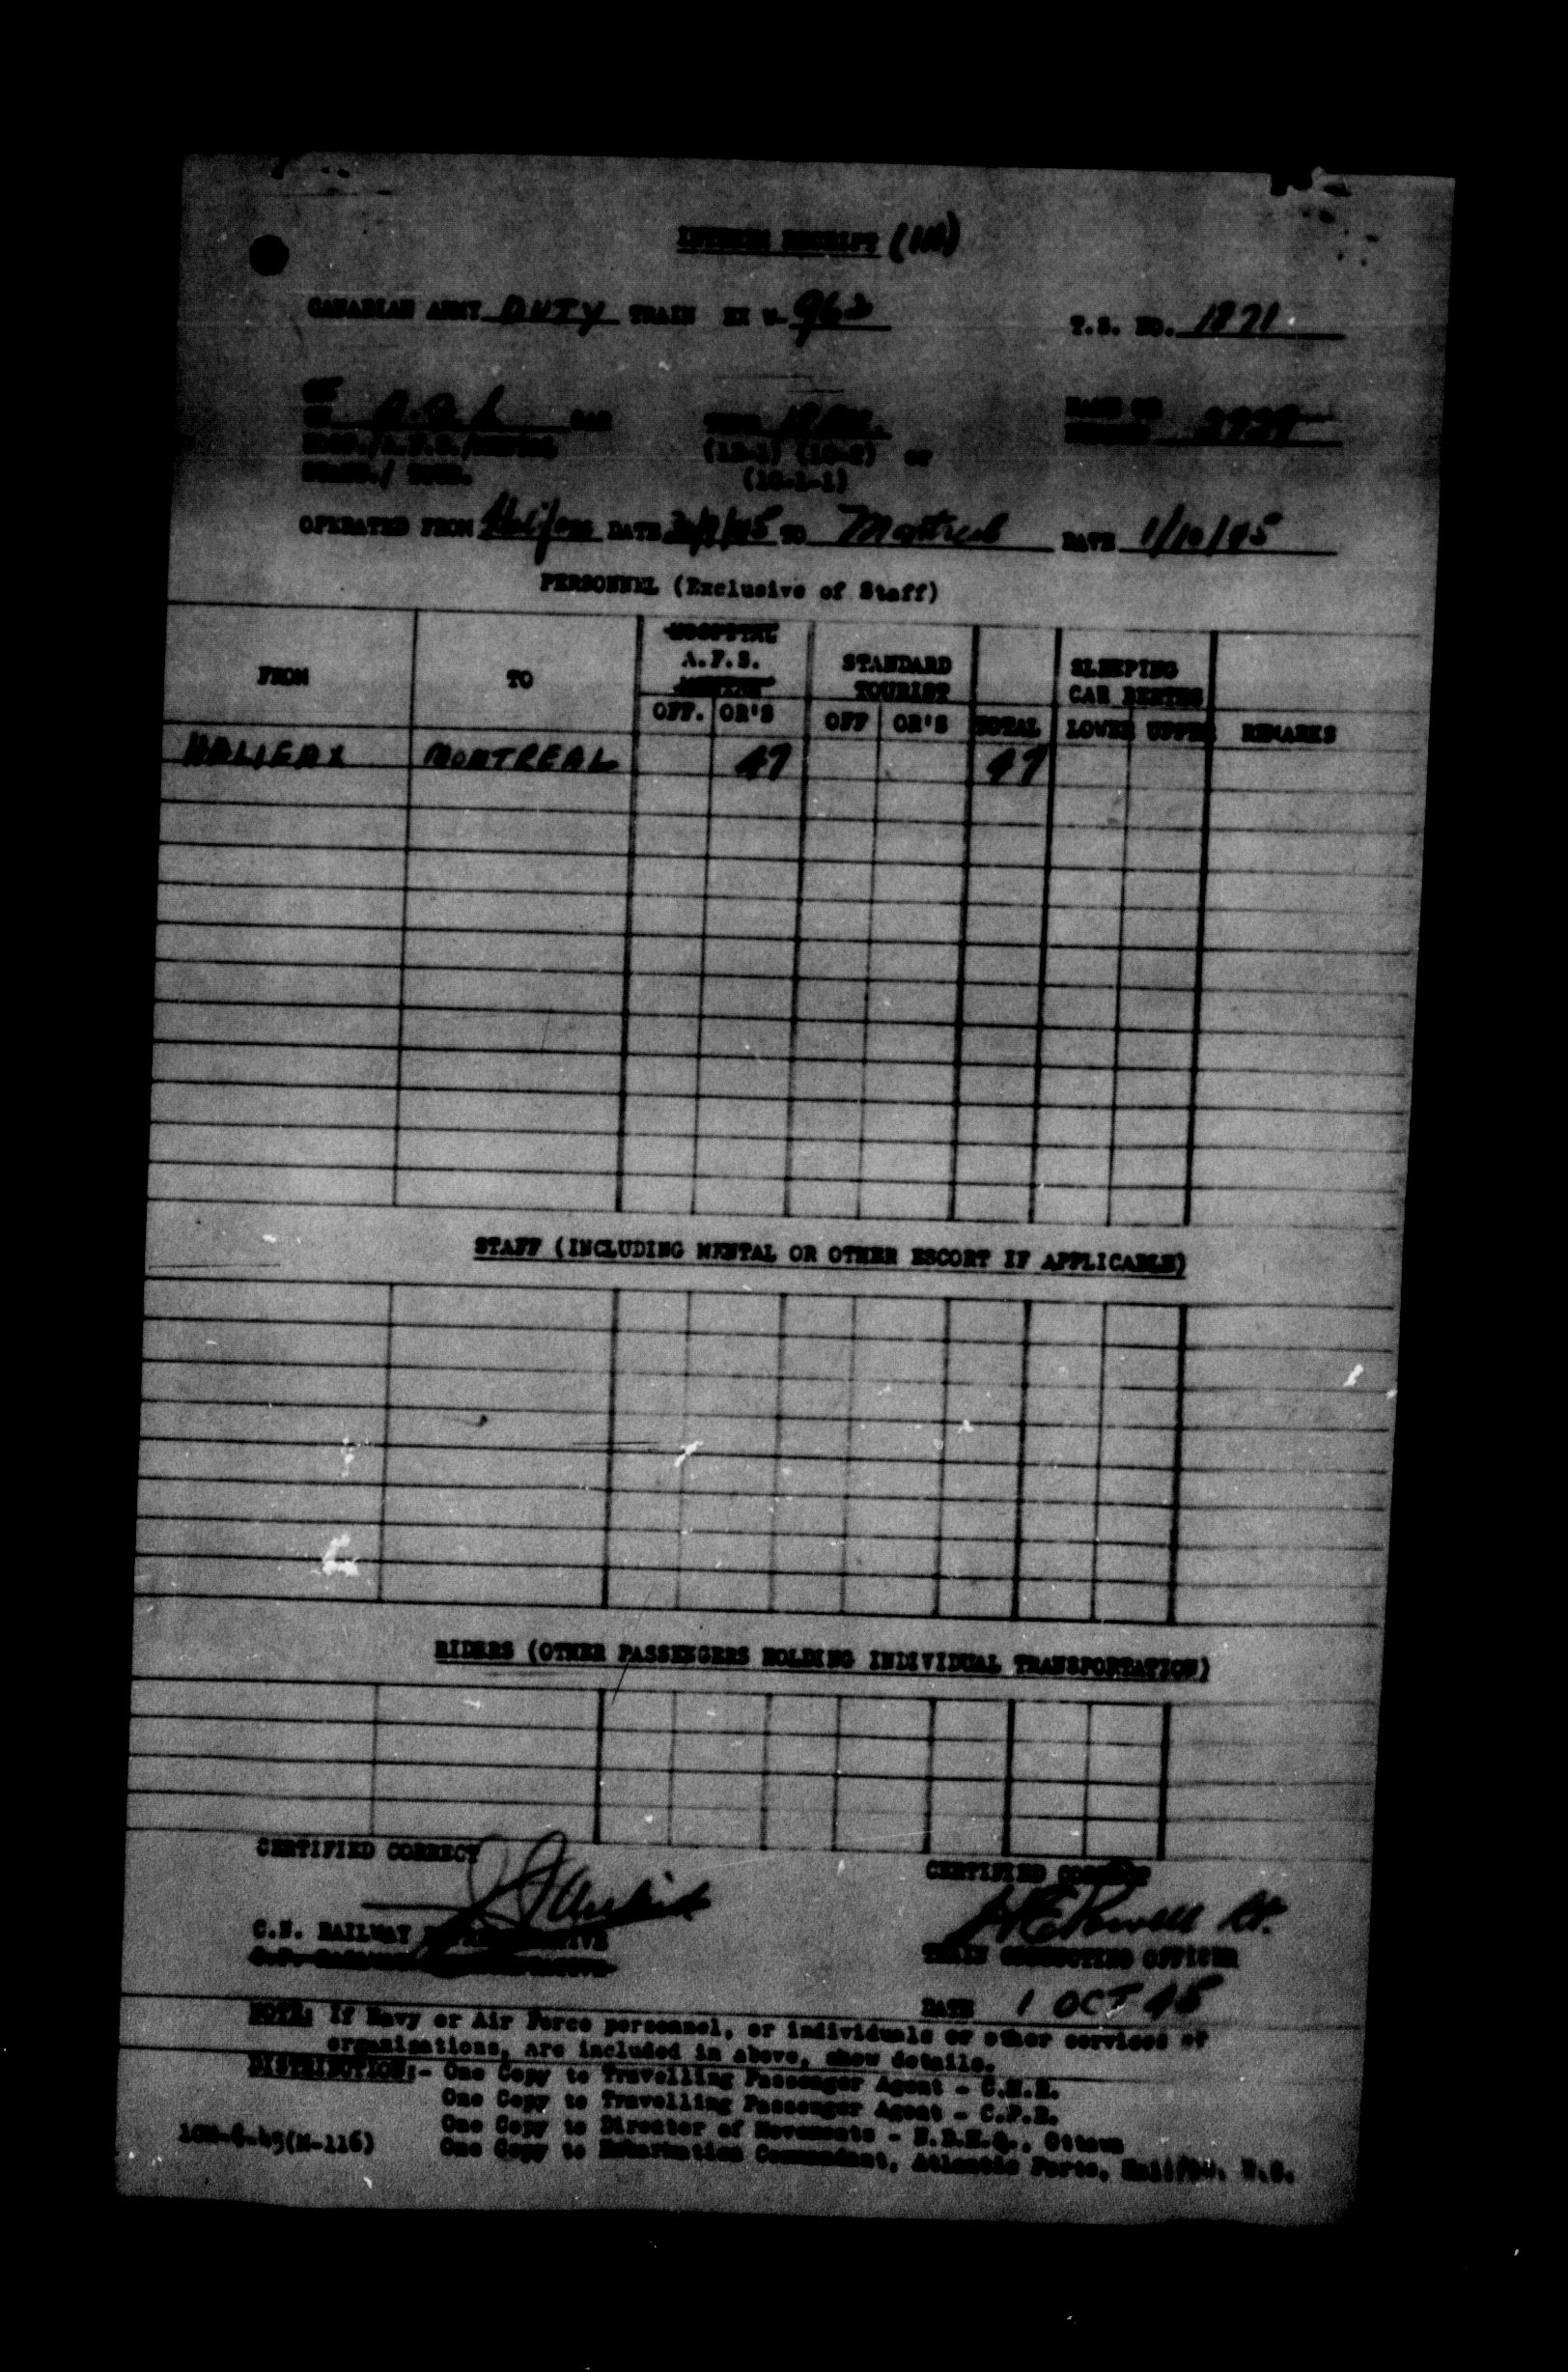 INTERIM RECEIPT (1A)
CANADIAN ARMY DUTY TRAIN EX W- 963 T.S. NO. 1871
CAR
(12-1) (10-2) or
(10-1-1)
OPERATED FROM Halifax DATE 30/9/45 TO Montreal DATE 1/10/45
PERSONNEL (Exclusive of Staff)
FROM TO HOSPITAL A.F.S. STANDARD TOURIST SLEEPING CAR BERTHS
OFF. OR'S OFF OR'S TOTAL LOWER UPPER REMARKS
HALIFAX MONTREAL 47 47
STAFF (INCLUDING MENTAL OR OTHER ESCORT IF APPLICABLE)
RIDERS (OTHER PASSENGERS HOLDING INDIVIDUAL TRANSPORTATION)
CERTIFIED CORRECT CERTIFIED CORRECT
H E Powell Lt.
C.N. RAILWAY REPRESENTATIVE TRAIN CONDUCTING OFFICER
DATE 1 OCT 45
NOTE: If Navy or Air Force personnel, or individuals or other services or
organizations, are included in above, show details.
DISTRIBUTION:- One Copy to Travelling Passenger Agent - C.N.R.
One Copy to Travelling Passenger Agent - C.P.R.
One Copy to Director of Movements - N.D.H.Q., Ottawa
One Copy to Embarkation Commandant, Atlantic Ports, Halifax, N.S.
10M-6-45(M-116)